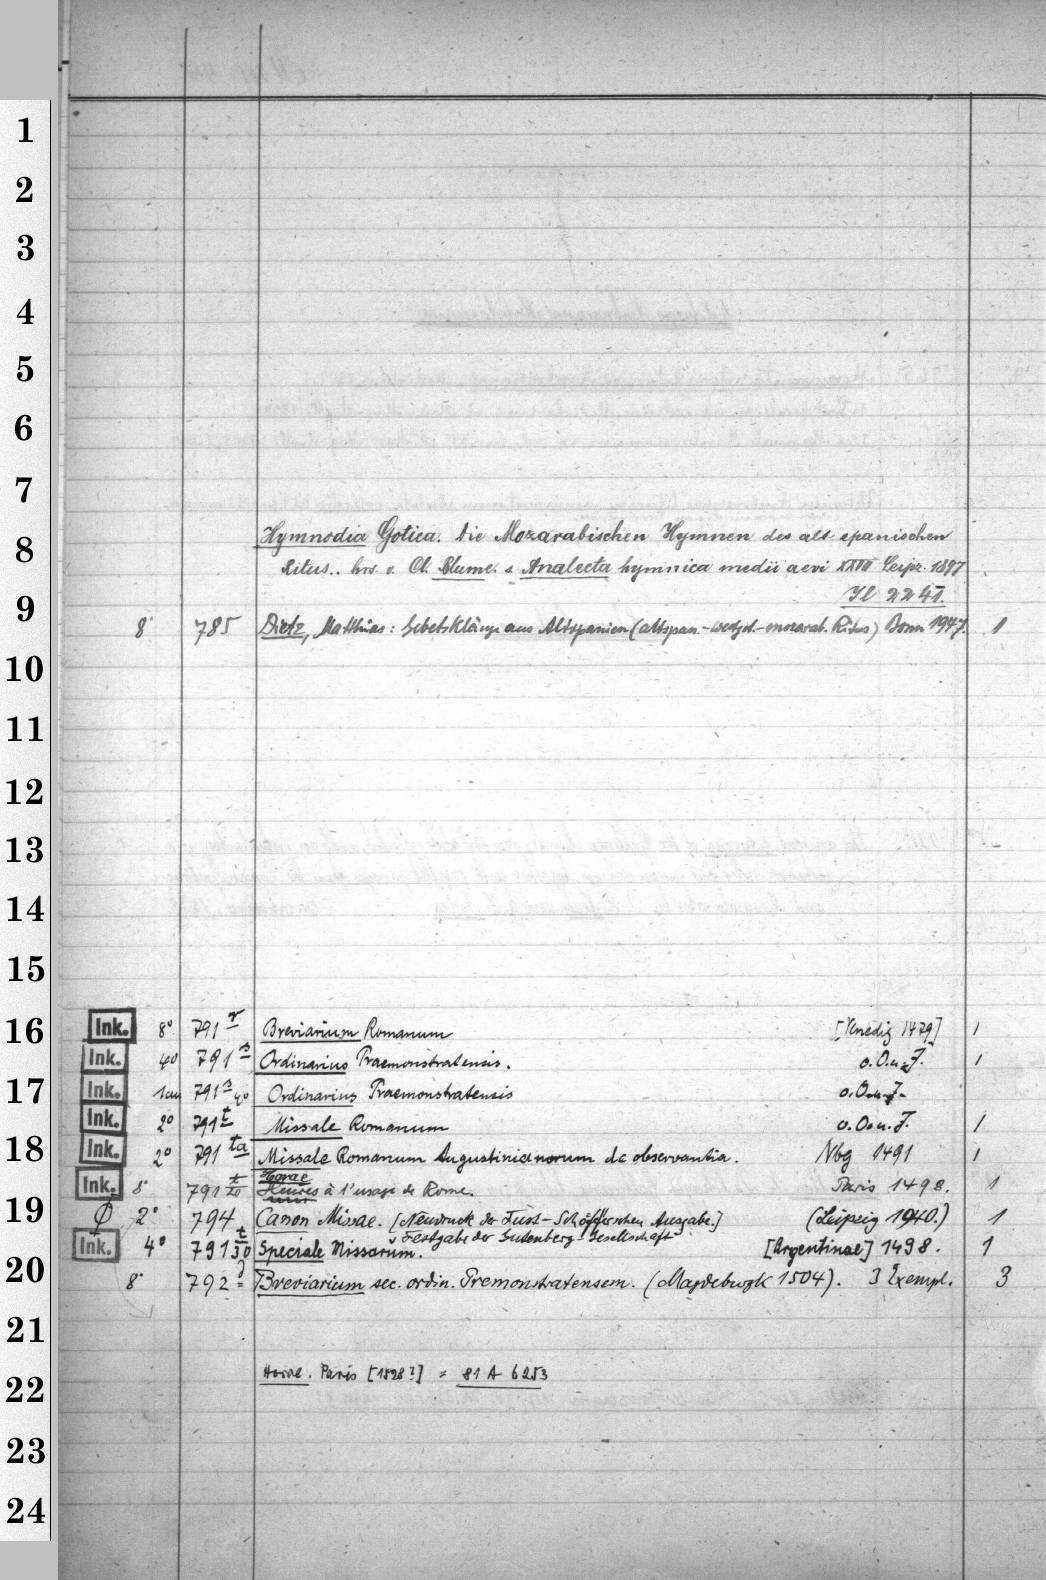 1
2
3
4
5
6
7
8
9
10
11
12
13
14
15
16
17
18
19
20
21
22
23
24
Hymnodia Gotica. Die Mozarabischen Hymnen des alt-spanischen
Ritus.. hrs. v. Cl. Blume. s Analecta hymnica medii aevi XXVII Leipz. 1897
Il 2241.
8° 785 Dietz, Matthias: Gebetsklänge aus Altspanien (altspan.-westgot.-mozarab. Ritus) Bonn 1947. 1
Ink. 8° 791 r Breviarium Romanum [Venedig 1479] 1
Ink. 4° 791 s Ordinarius Praemonstratensis. o.O.u.J. 1
Ink. 791 s 40 Ordinarius Praemonstratensis o.O.u.J.
Ink. 2° 791 t Missale Romanum o.O.u.J. 1
Ink. 2° 791 ta Missale Romanum Augustinianorum de observantia. Nbg 1491 1
Horae
Ink. 8° 791 t/20 Heures à l'usage de Rome. Paris 1498. 1
Ø 2° 794 Canon Missae. [Neudruck der Fust-Schöfferschen Ausgabe.] (Leipzig 1940.) 1
v Festgabe der Gutenberg-Gesellschaft
Ink. 4° 791 t/50 Speciale Missarum. [Argentinae] 1498. 1
8° 792 Breviarium sec. ordin. Premonstratensem. (Magdeburgk 1504). 3 Exempl. 3
Horae. Paris [1528?] = 81 A 6253